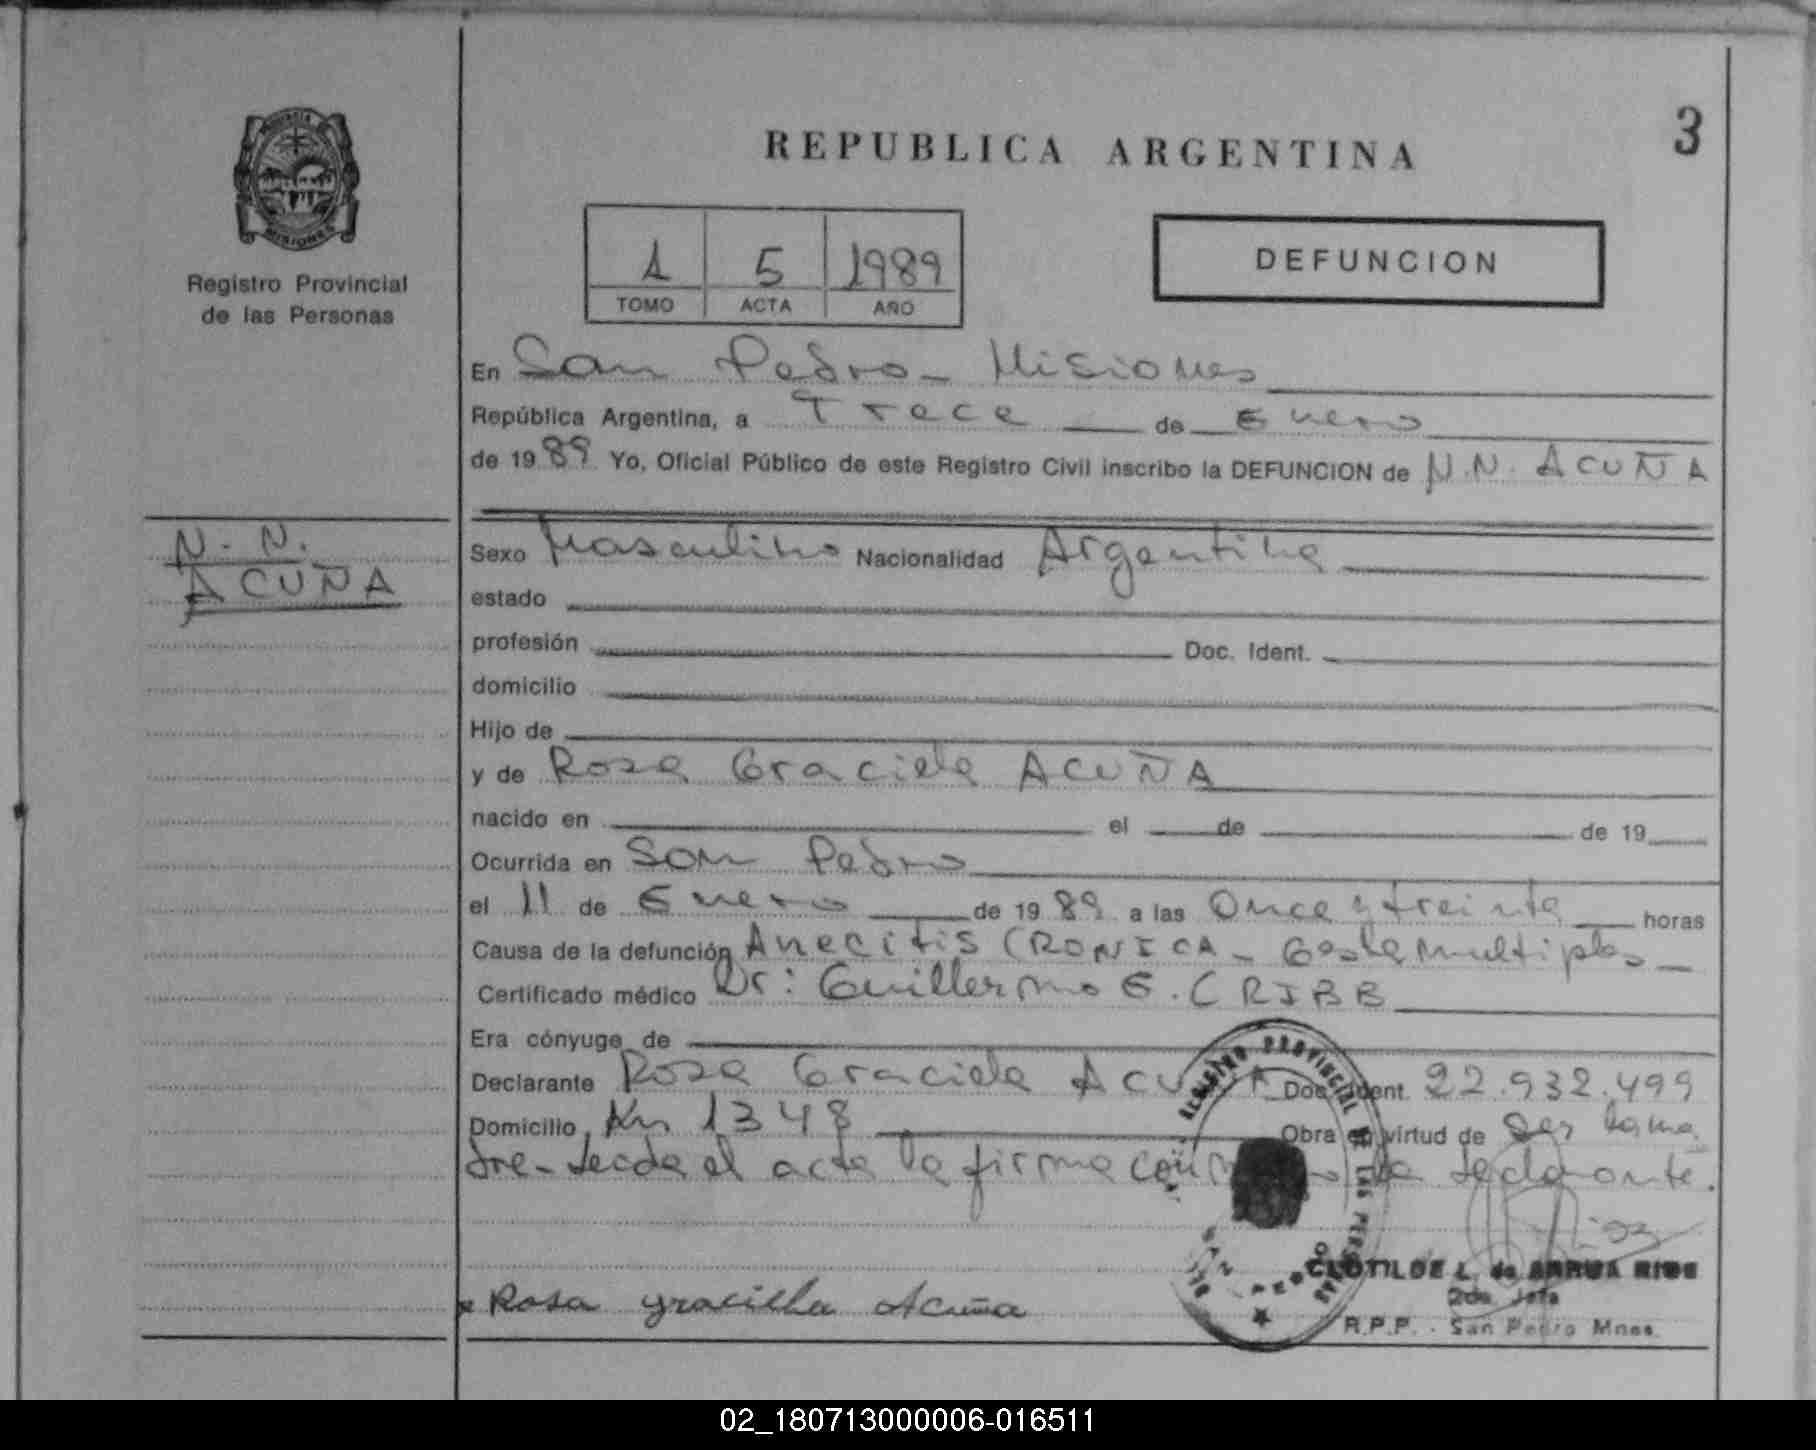 3
REPUBLICA ARGENTINA
PROVINCIA DE
MISIONES
Registro Provincial
de las Personas
1 5 1989
TOMO ACTA AÑO
DEFUNCION
En San Pedro - Misiones
República Argentina, a Trece de Enero
de 1989 Yo, Oficial Público de este Registro Civil inscribo la DEFUNCION de N.N. ACUÑA
N. N.
ACUÑA
Sexo Masculino Nacionalidad Argentina
estado
profesión Doc. Ident.
domicilio
Hijo de
y de Rosa Graciela ACUÑA
nacido en el de de 19
Ocurrida en San Pedro
el 11 de Enero de 1989 a las Once y treinta horas
Causa de la defunción Anecitis CRONICA - Gesta multiples
Certificado médico Dr: Guillermo E. CRIBB
Era cónyuge de
Declarante Rosa Graciela ACUÑA Doc. Ident. 22.932.499
Domicilio Km 1348 Obra en virtud de Ser la ma
dre - Leida el acta la firma la declarante.
REGISTRO PROVINCIAL DE LAS PERSONAS
SAN PEDRO
CLOTILDE L. de
2da. Jefa
R.P.P. - San Pedro Mnes.
Rosa gracilha Acuña
02_180713000006-016511